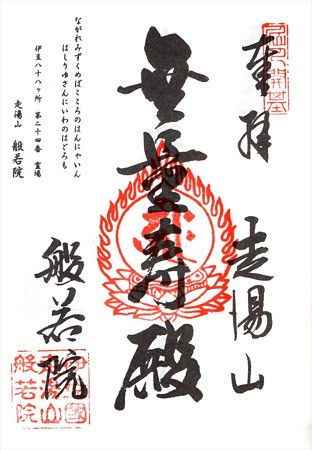 奉拝
走湯山
無量寿殿
ながれみずくめばこころのはんにゃいん
はしりゆさんにいわのはごろも
伊豆八十八ヶ所 第二十四番 霊場
走湯山 般若院
般若院